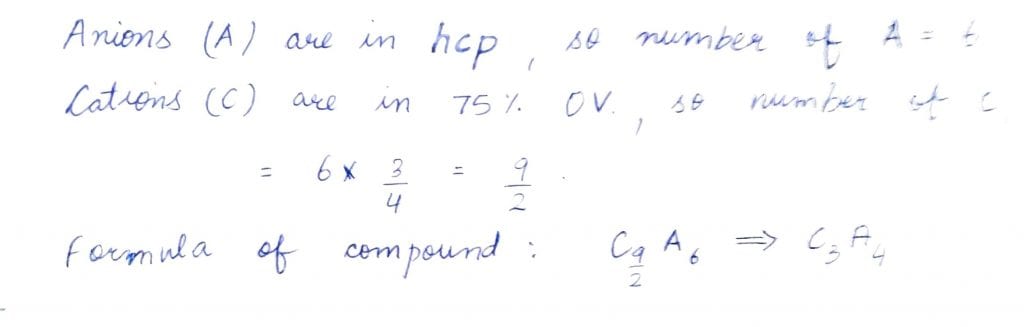 Anions (A) are in hcp, so number of A = 6
Cations (C) are in 75 % OV., so number of C
= 6 x 3/4 = 9/2.
Formula of compound : C9/2 A6 ⇒ C3A4